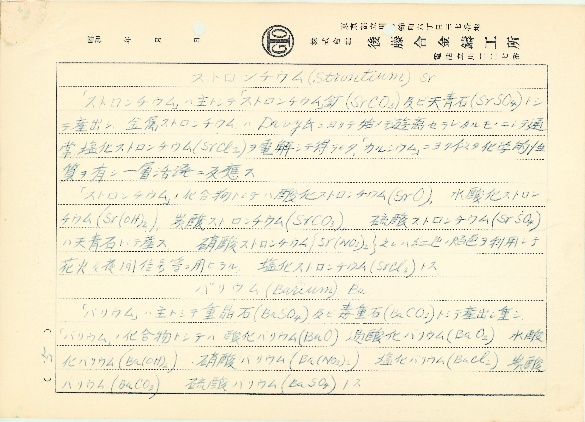 昭和 年 月 日
株式会社 後藤合金鋳工所
ストロンチウム(Strontium) Sr
「ストロンチウム」ハ主トシテ「ストロンチウム鉱(SrCO₃)及ビ天青石(SrSO₄)トシ
テ産出シ、金属ストロンチウムハDavy氏ニヨリテ始メテ遊離セラレタルモノニシテ通
常塩化ストロンチウム(SrCl₂)ヲ電解シテ得ラル、カルシウムニヨク似タ化学的性
質ヲ有シ一層活溌ニ反應ス
「ストロンチウム」ノ化合物トシテハ酸化ストロンチウム(SrO)、 水酸化ストロン
チウム(Sr(OH)₂)、炭酸ストロンチウム(SrCO₃) 硫酸ストロンチウム(SrSO₄)
ハ天青石トシテ産ス 硝酸ストロンチウム{Sr(NO₃)₂} 色ノ焔色ヲ利用シテ
花火ヤ夜間信号等ニ用ヒラル、 塩化ストロンチウム(SrCl₂)トス
バリウム(Barium) Ba
「バリウム」ハ主トシテ重晶石(BaSO₄)及ビ毒重石(BaCO₃)トシテ産出シ
「バリウム」ノ化合物トシテハ 酸化バリウム(BaO) 過酸化バリウム(BaO₂) 水酸
化バリウム(Ba(OH)₂) 硝酸バリウム(Ba(NO₃)₂) 塩化バリウム(BaCl₂) 炭酸
バリウム(BaCO₃) 硫酸バリウム(BaSO₄)トス